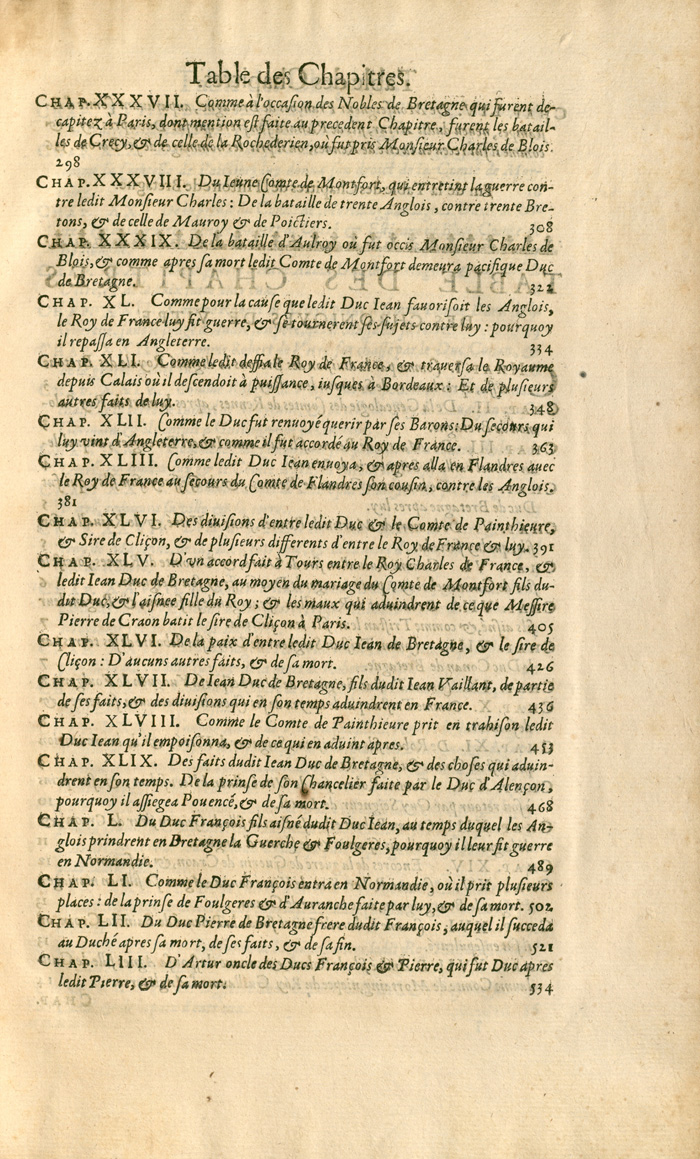 Table des Chapitres.
CHAP. XXXVII. Comme à l'occasion des Nobles de Bretagne qui furent de-
capitez à Paris, dont mention est faite au precedent Chapitre, furent les batail-
les de Crecy, & de celle de la Rochederien, ou fut pris Monsieur Charles de Blois.
298
CHAP. XXXVIII. Du Ieune Comte de Montfort, qui entretint la guerre con-
tre ledit Monsieur Charles : De la bataille de trente Anglois, contre trente Bre-
tons, & de celle de Mauroy & de Poictiers. 308
CHAP. XXXIX. De la bataille d'Aulroy où fut occis Monsieur Charles de
Blois, & comme apres sa mort ledit Comte de Montfort demeura pacifique Duc
de Bretagne. 322
CHAP. XL. Comme pour la cause que ledit Duc Iean fauorisoit les Anglois,
le Roy de France luy fit guerre, & se tournerent ses sujets contre luy : pourquoy
il repassa en Angleterre. 334
CHAP. XLI. Comme ledit deffia le Roy de France, & trauersa le Royaume
depuis Calais où il descendoit à puissance, iusques à Bordeaux : Et de plusieurs
autres faits de luy. 348
CHAP. XLII. Comme le Duc fut renuoyé querir par ses Barons : Du secours qui
luy vint d'Angleterre, & comme il fut accordé au Roy de France. 363
CHAP. XLIII. Comme ledit Duc Iean enuoya, & apres alla en Flandres auec
le Roy de France au secours du Comte de Flandres son cousin, contre les Anglois.
381
CHAP. XLVI. Des diuisions d'entre ledit Duc & le Comte de Painthieure,
& Sire de Cliçon, & de plusieurs differents d'entre le Roy de France & luy. 391
CHAP. XLV. D'vn accord fait à Tours entre le Roy Charles de France, &
ledit Iean Duc de Bretagne, au moyen du mariage du Comte de Montfort fils du-
dit Duc, & l'aisnee fille du Roy ; & les maux qui aduindrent de ce que Messire
Pierre de Craon batit le sire de Cliçon à Paris. 405
CHAP. XLVI. De la paix d'entre ledit Duc Iean de Bretagne, & le sire de
Cliçon : D'aucuns autres faits, & de sa mort. 426
CHAP. XLVII. De Iean Duc de Bretagne, fils dudit Iean Vaillant, de partie
de ses faits, & des diuisions qui en son temps aduindrent en France. 436
CHAP. XLVIII. Comme le Comte de Painthieure prit en trahison ledit
Duc Iean qu'il empoisonna, & de ce qui en aduint apres. 453
CHAP. XLIX. Des faits dudit Iean Duc de Bretagne, & des choses qui aduin-
drent en son temps. De la prinse de son Chancelier faite par le Duc d'Alençon,
pourquoy il assiegea Pouencé, & de sa mort. 468
CHAP. L. Du Duc François fils aisné dudit Duc Iean, au temps duquel les An-
glois prindrent en Bretagne la Guerche & Foulgeres, pourquoy il leur fit guerre
en Normandie. 489
CHAP. LI. Comme le Duc François entra en Normandie, où il prit plusieurs
places : de la prinse de Foulgeres & d'Auranche faite par luy, & de sa mort. 502
CHAP. LII. Du Duc Pierre de Bretagne frere dudit François, auquel il succeda
au Duché apres sa mort, de ses faits, & de sa fin. 521
CHAP. LIII. D'Artur oncle des Ducs François & Pierre, qui fut Duc apres
ledit Pierre, & de sa mort. 534